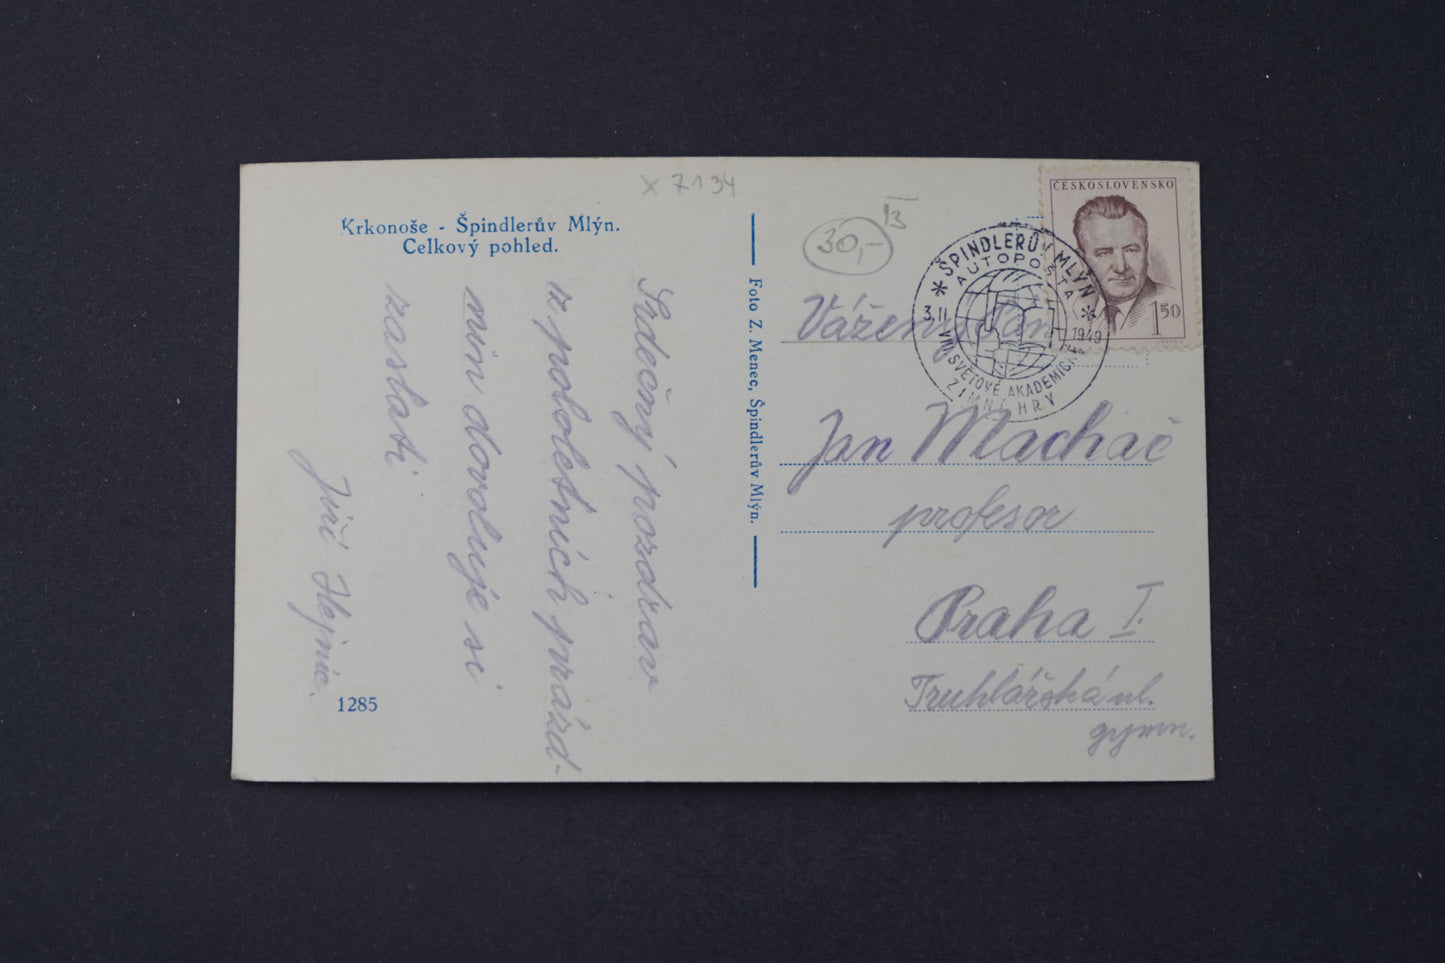 x 7134
Krkonoše - Špindlerův Mlýn.
Celkový pohled.
Srdečný pozdrav
z pololetních prázd-
nin dovoluje si
zaslati
Jiří Hejnic.
1285
Foto Z. Menec, Špindlerův Mlýn.
30,-
13
ČESKOSLOVENSKO
1 50
ŠPINDLERŮV MLÝN
AUTOPOŠTA
3.II. 1949
VIII SVĚTOVÉ AKADEMICKÉ
ZIMNÍ HRY
Vážený pan
Jan Machač
profesor
Praha I.
Truhlářská ul.
gymn.